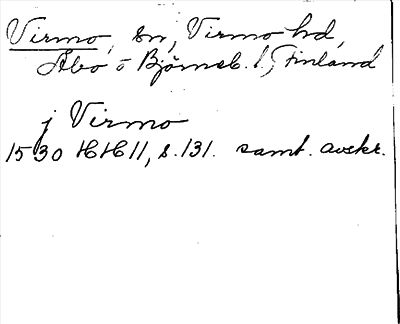 Virmo, sn, Virmo hd,
Åbo o Björneb. l., Finland
j Virmo
1530 HH II, s. 131. samt. avskr.